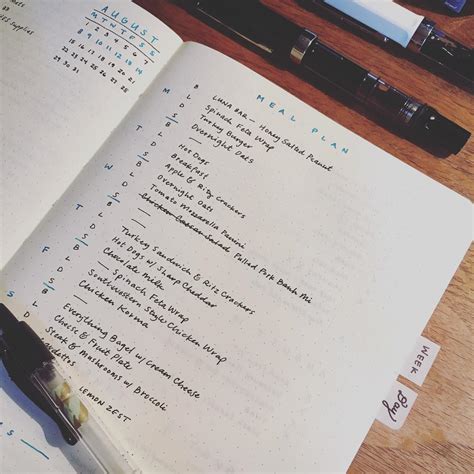 AUGUST
M T W T F S S
1 2 3 4 5 6 7
8 9 10 11 12 13 14
15 16 17 18 19 20 21
22 23 24 25 26 27 28
29 30 31
MEAL PLAN
M B LUNA BAR — Honey Salted Peanut
L Spinach Feta Wrap
D Turkey Burger
S Overnight Oats
T B —
L Hot Dogs
D Breakfast
S Apple & Ritz Crackers
W B Overnight Oats
L Tomato Mozzarella Panini
D Chicken Caesar Salad Pulled Pork Banh Mi
S —
T B —
L Turkey Sandwich & Ritz Crackers
D Hot Dogs w/ Sharp Cheddar
S Chocolate Milk
F B —
L Spinach Feta Wrap
D Southwestern Style Chicken Wrap
S Chicken Korma
S B —
L Everything Bagel w/ Cream Cheese
D Cheese & Fruit Plate
Steak & Mushrooms w/ Broccoli
LEMON ZEST
WEEK
Day